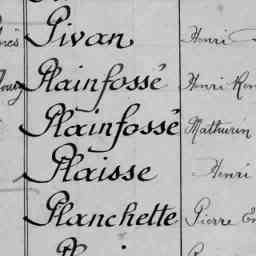 Pivan Henri
Plainfossé Henri
Plainfossé Mathurin
Plaisse Henri
Planchette Pierre